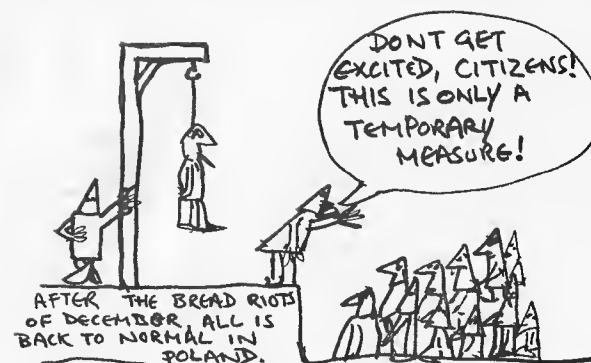 DONT GET
EXCITED, CITIZENS!
THIS IS ONLY A
TEMPORARY
MEASURE!
AFTER THE BREAD RIOTS
OF DECEMBER ALL IS
BACK TO NORMAL IN
POLAND.